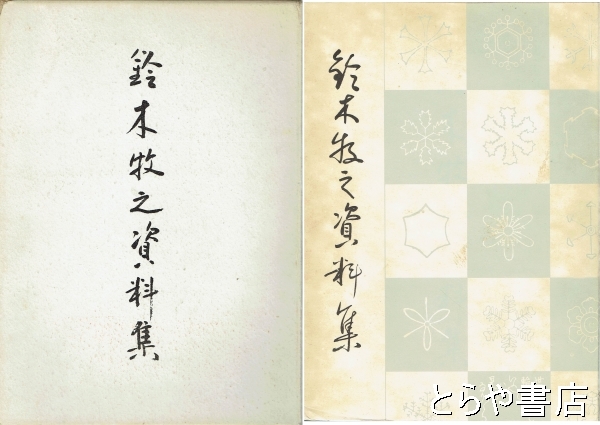 鈴木牧之資料集
鈴木牧之資料集
とらや書店